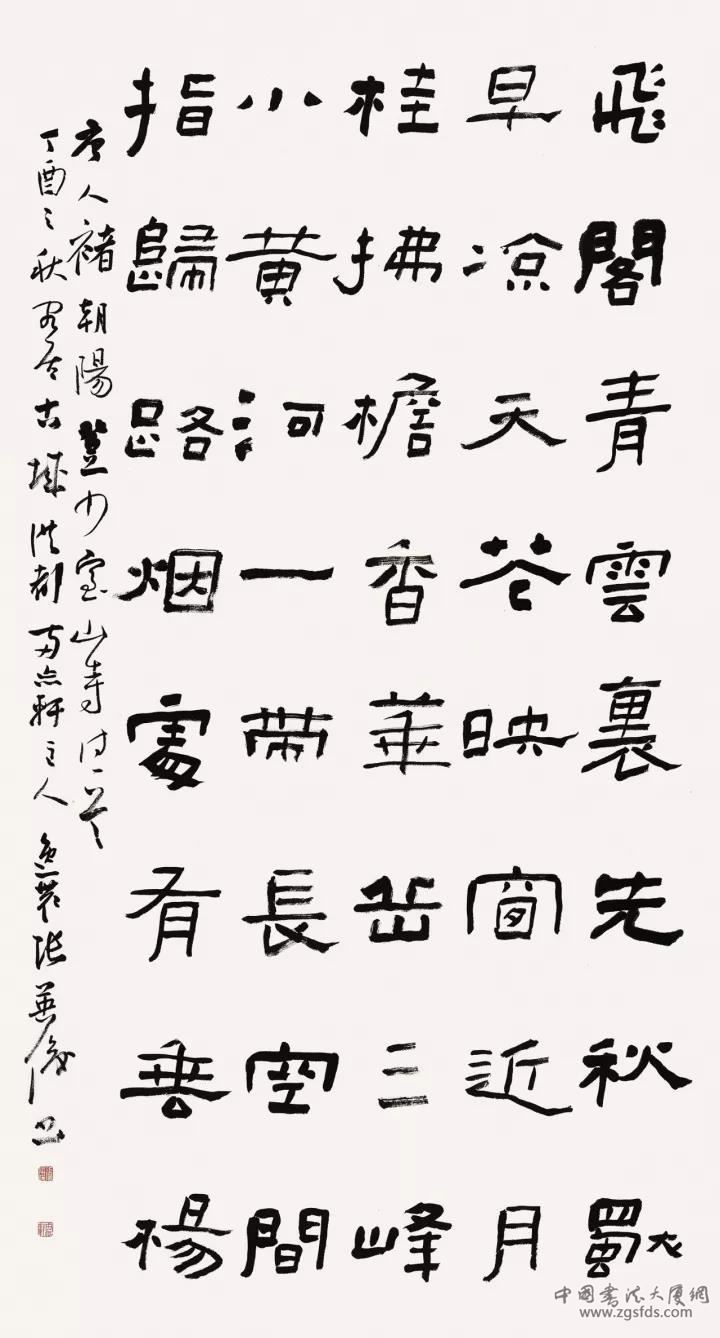 飛閣青雲裏先秋獨
早凉天花映窗近月
桂拂檐香華岳三峰
小黃河一帶長空間
指歸路烟處有垂楊
唐人褚朝陽登少室山寺詩一首
丁酉之秋客居古城洪都軒主人張英俊书
中國書法大厦網
www.zgsfds.com